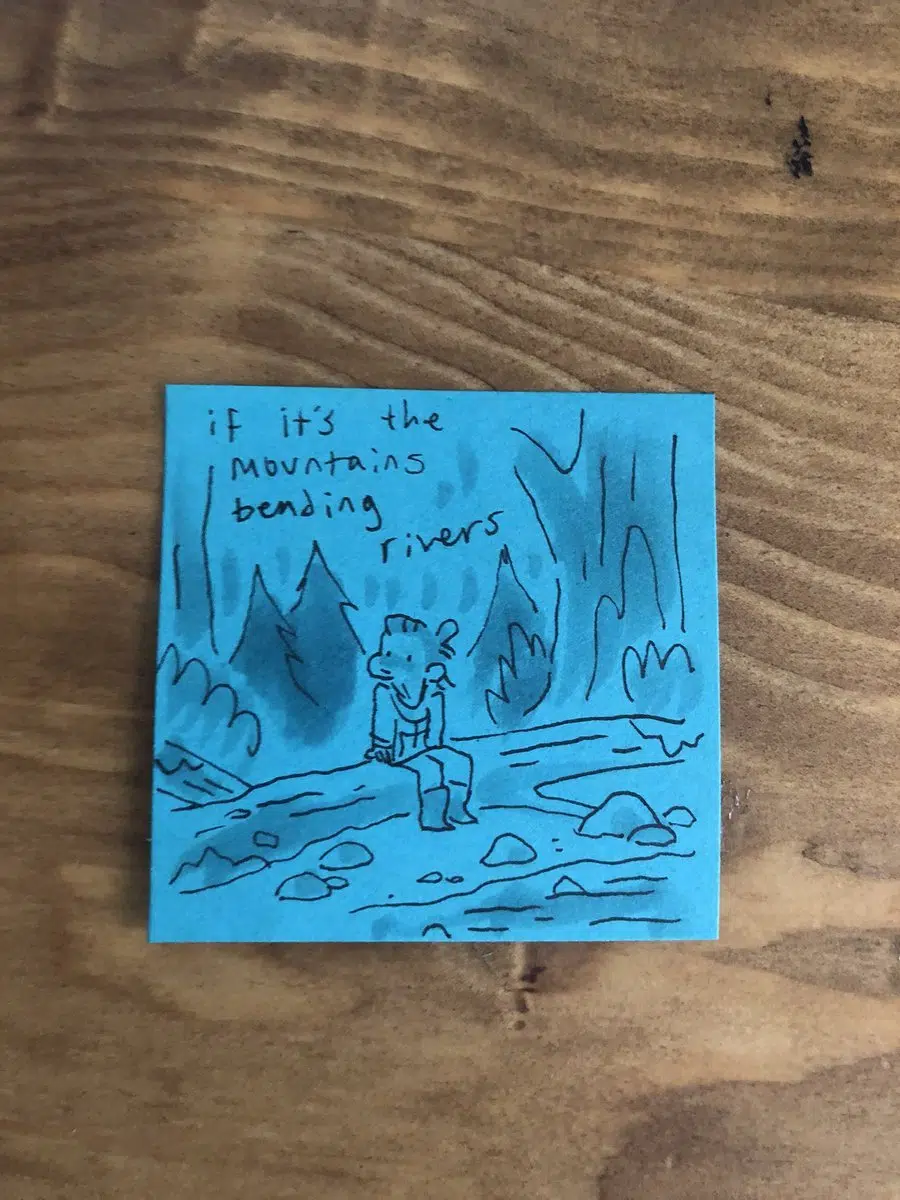 if it's the
mountains
bending
rivers